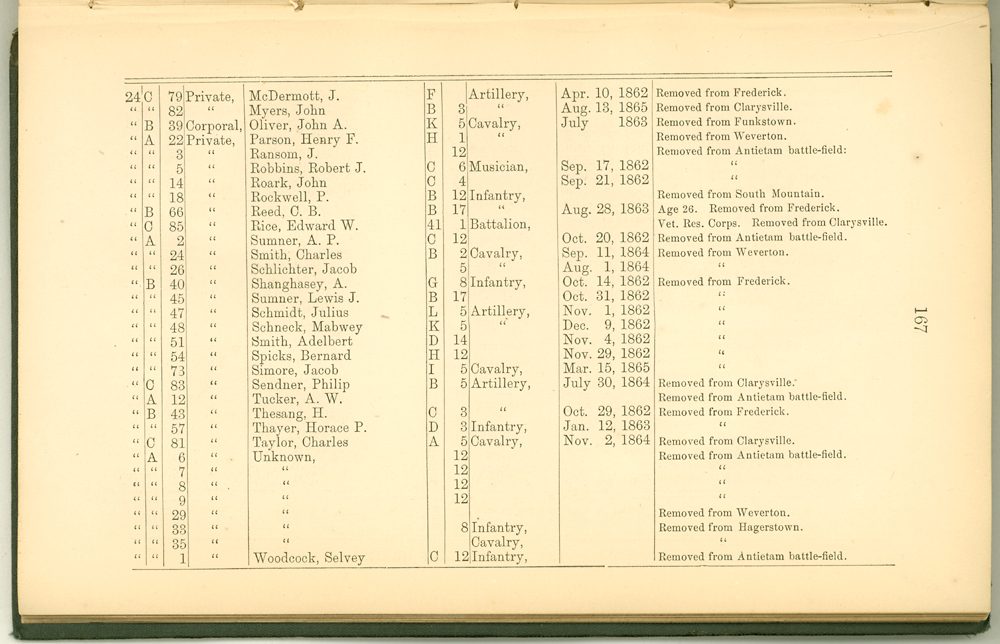 24 C 79 Private, McDermott, J. F Artillery, Apr. 10, 1862 Removed from Frederick.
“ “ 82 “ Myers, John B 3 “ Aug. 13, 1865 Removed from Clarysville.
“ B 39 Corporal, Oliver, John A. K 5 Cavalry, July 1863 Removed from Funkstown.
“ A 22 Private, Parson, Henry F. H 1 “ Removed from Weverton.
“ “ 3 “ Ransom, J. 12 Removed from Antietam battle-field:
“ “ 5 “ Robbins, Robert J. C 6 Musician, Sep. 17, 1862 “
“ “ 14 “ Roark, John C 4 Sep. 21, 1862 “
“ “ 18 “ Rockwell, P. B 12 Infantry, Removed from South Mountain.
“ B 66 “ Reed, C. B. B 17 “ Aug. 28, 1863 Age 26. Removed from Frederick.
“ C 85 “ Rice, Edward W. 41 1 Battalion, Vet. Res. Corps. Removed from Clarysville.
“ A 2 “ Sumner, A. P. C 12 Oct. 20, 1862 Removed from Antietam battle-field.
“ “ 24 “ Smith, Charles B 2 Cavalry, Sep. 11, 1864 Removed from Weverton.
“ “ 26 “ Schlichter, Jacob 5 “ Aug. 1, 1864 “
“ B 40 “ Shanghasey, A. G 8 Infantry, Oct. 14, 1862 Removed from Frederick.
“ “ 45 “ Sumner, Lewis J. B 17 Oct. 31, 1862 “
“ “ 47 “ Schmidt, Julius L 5 Artillery, Nov. 1, 1862 “
“ “ 48 “ Schneck, Mabwey K 5 “ Dec. 9, 1862 “
“ “ 51 “ Smith, Adelbert D 14 Nov. 4, 1862 “
“ “ 54 “ Spicks, Bernard H 12 Nov. 29, 1862 “
“ “ 73 “ Simore, Jacob I 5 Cavalry, Mar. 15, 1865 “
“ C 83 “ Sendner, Philip B 5 Artillery, July 30, 1864 Removed from Clarysville.
“ A 12 “ Tucker, A. W. Removed from Antietam battle-field.
“ B 43 “ Thesang, H. C 3 “ Oct. 29, 1862 Removed from Frederick.
“ “ 57 “ Thayer, Horace P. D 3 Infantry, Jan. 12, 1863 “
“ C 81 “ Taylor, Charles A 5 Cavalry, Nov. 2, 1864 Removed from Clarysville.
“ A 6 “ Unknown, 12 Removed from Antietam battle-field.
“ “ 7 “ “ 12 “
“ “ 8 “ “ 12 “
“ “ 9 “ “ 12 “
“ “ 29 “ “ Removed from Weverton.
“ “ 33 “ “ 8 Infantry, Removed from Hagerstown.
“ “ 35 “ “ Cavalry, “
“ “ 1 “ Woodcock, Selvey C 12 Infantry, Removed from Antietam battle-field.
167